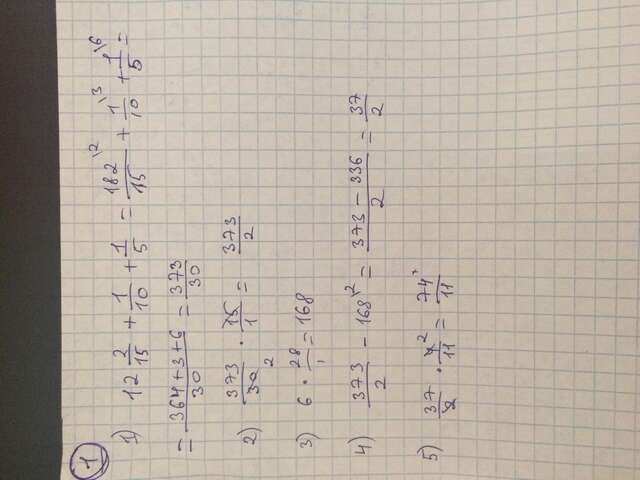 1
1) 12 2/15 + 1/10 + 1/5 = 182/15 \2 + 1/10 \3 + 1/5 \6 =
= 364+3+6/30 = 373/30
2) 373/30 2 · 15/1 = 373/2
3) 6 · 28/1 = 168
4) 373/2 - 168 \2 = 373 - 336/2 = 37/2
5) 37/2 · 4 2/11 = 74/11